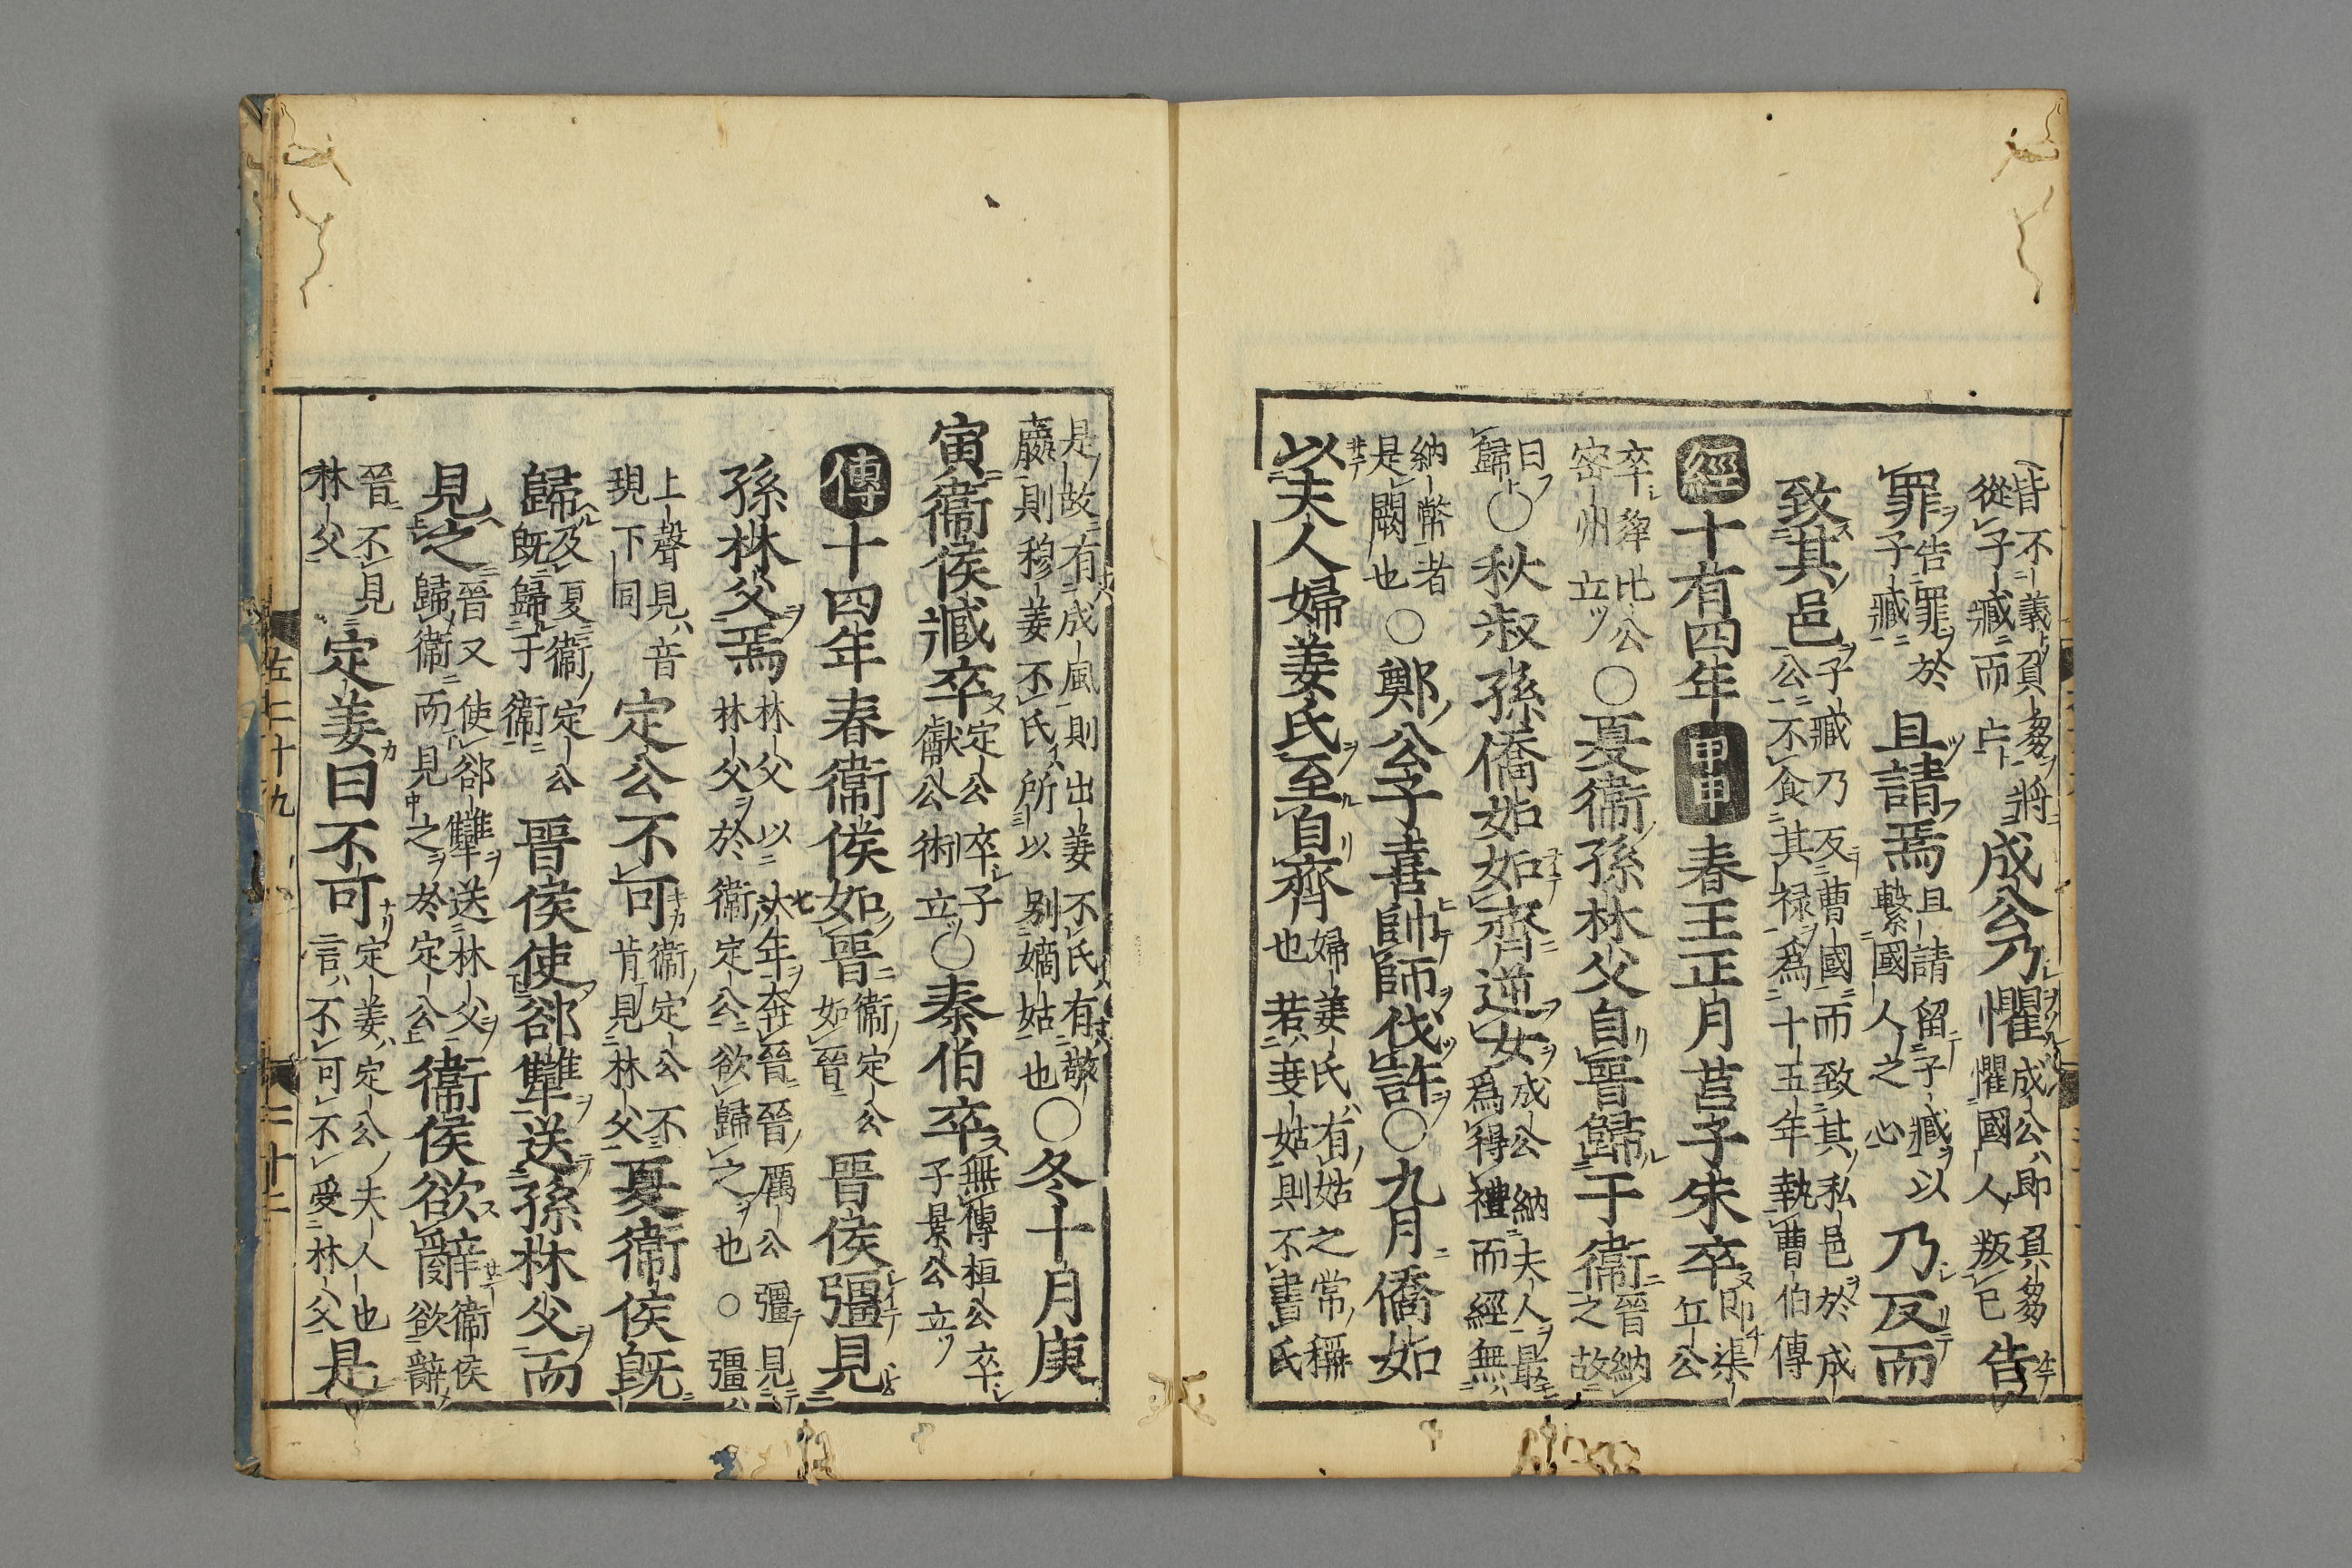 皆不義負芻將
從子臧而亡
成公乃懼
成公即負芻
懼國人叛已
告
罪
告罪於
子臧
且請焉
且請留子臧以
繫國人之心
乃反而
致其邑
子臧乃反曹國而致其私邑於成
公不食其祿為十五年執曹伯傳
經十有四年甲申春王正月莒子朱卒
即渠
丘公
卒犂比公
密州立
○夏衞孫林父自晉歸于衞
晉納
之故
曰
歸
○秋叔孫僑如如齊逆女
成公納夫人最
爲得禮而經無
納幣者
是闕也
○鄭公子喜帥師伐許○九月僑如
以夫人婦姜氏至自齊
婦姜氏有姑之常稱
也若妾姑則不書氏
是故有成風則出姜不氏有敬
嬴則穆姜不氏所以別嫡姑也
○冬十月庚
寅衞侯臧卒
定公卒子
獻公衎立
○秦伯卒
無傳桓公卒
子景公立
傳十四年春衞侯如晉
衞定公
如晉
晉侯彊見
孫林父焉
林父以七年奔晉晉厲公彊見
林父於衞定公欲歸之也○彊
上聲見音
現下同
定公不可
衞定公不
肯見林父
夏衞侯既
歸
及夏衞定公
既歸于衞
晉侯使郤犨送孫林父而
見之
晉又使郤犨送林父
歸衞而見之於定公
衞侯欲辭
衞侯
欲辭
晉不見
林父
定姜曰不可
定姜定公夫人也
言不可不受林父
是
佐二十九
二十二